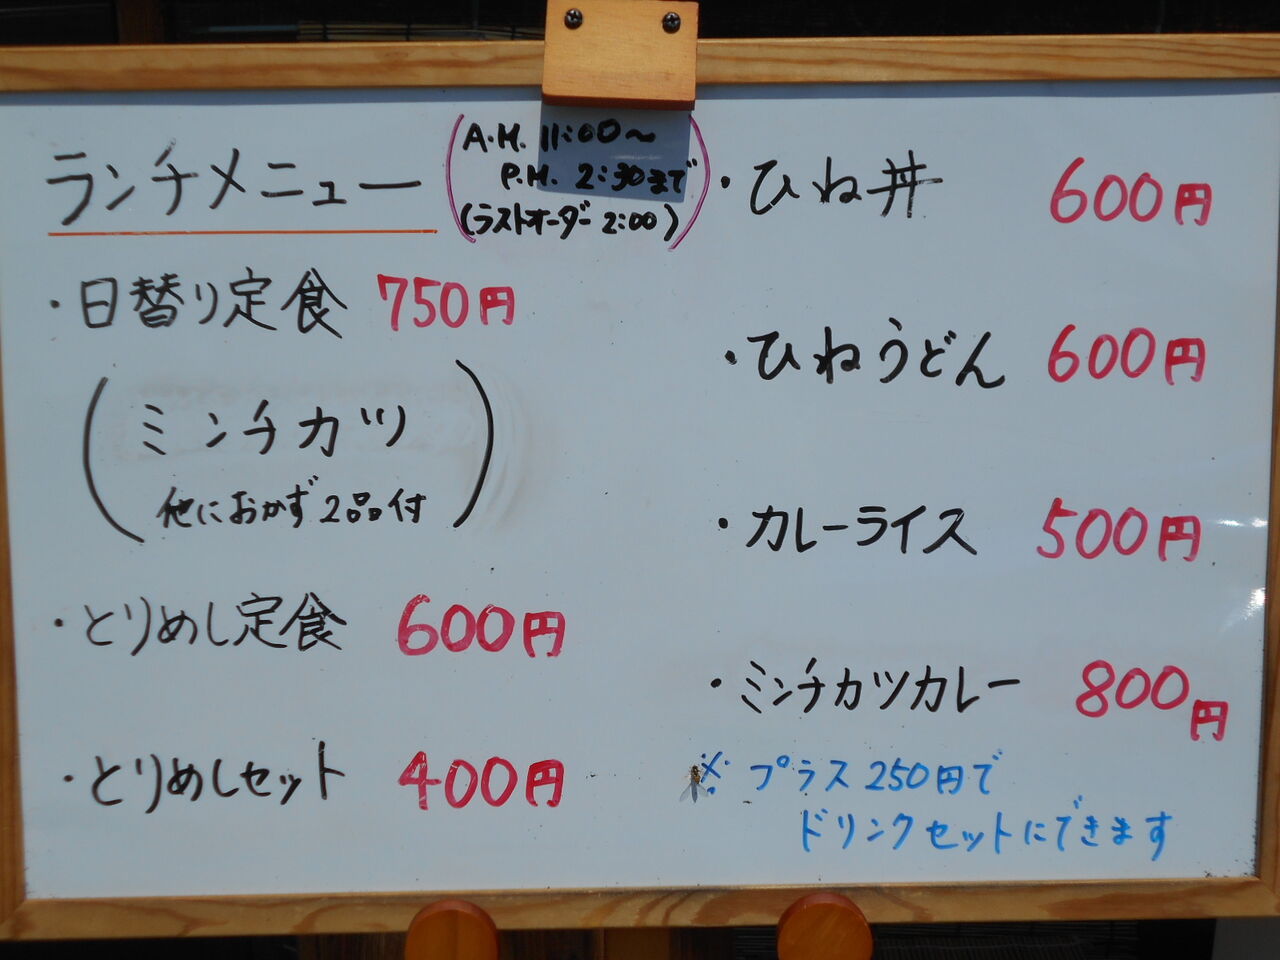 ランチメニュー
(A.M. 11:00〜
P.M. 2:30まで
(ラストオーダー 2:00))
・日替り定食 750円
(ミンチカツ
他におかず2品付)
・とりめし定食 600円
・とりめしセット 400円
・ひね丼 600円
・ひねうどん 600円
・カレーライス 500円
・ミンチカツカレー 800円
※ プラス250円で
ドリンクセットにできます